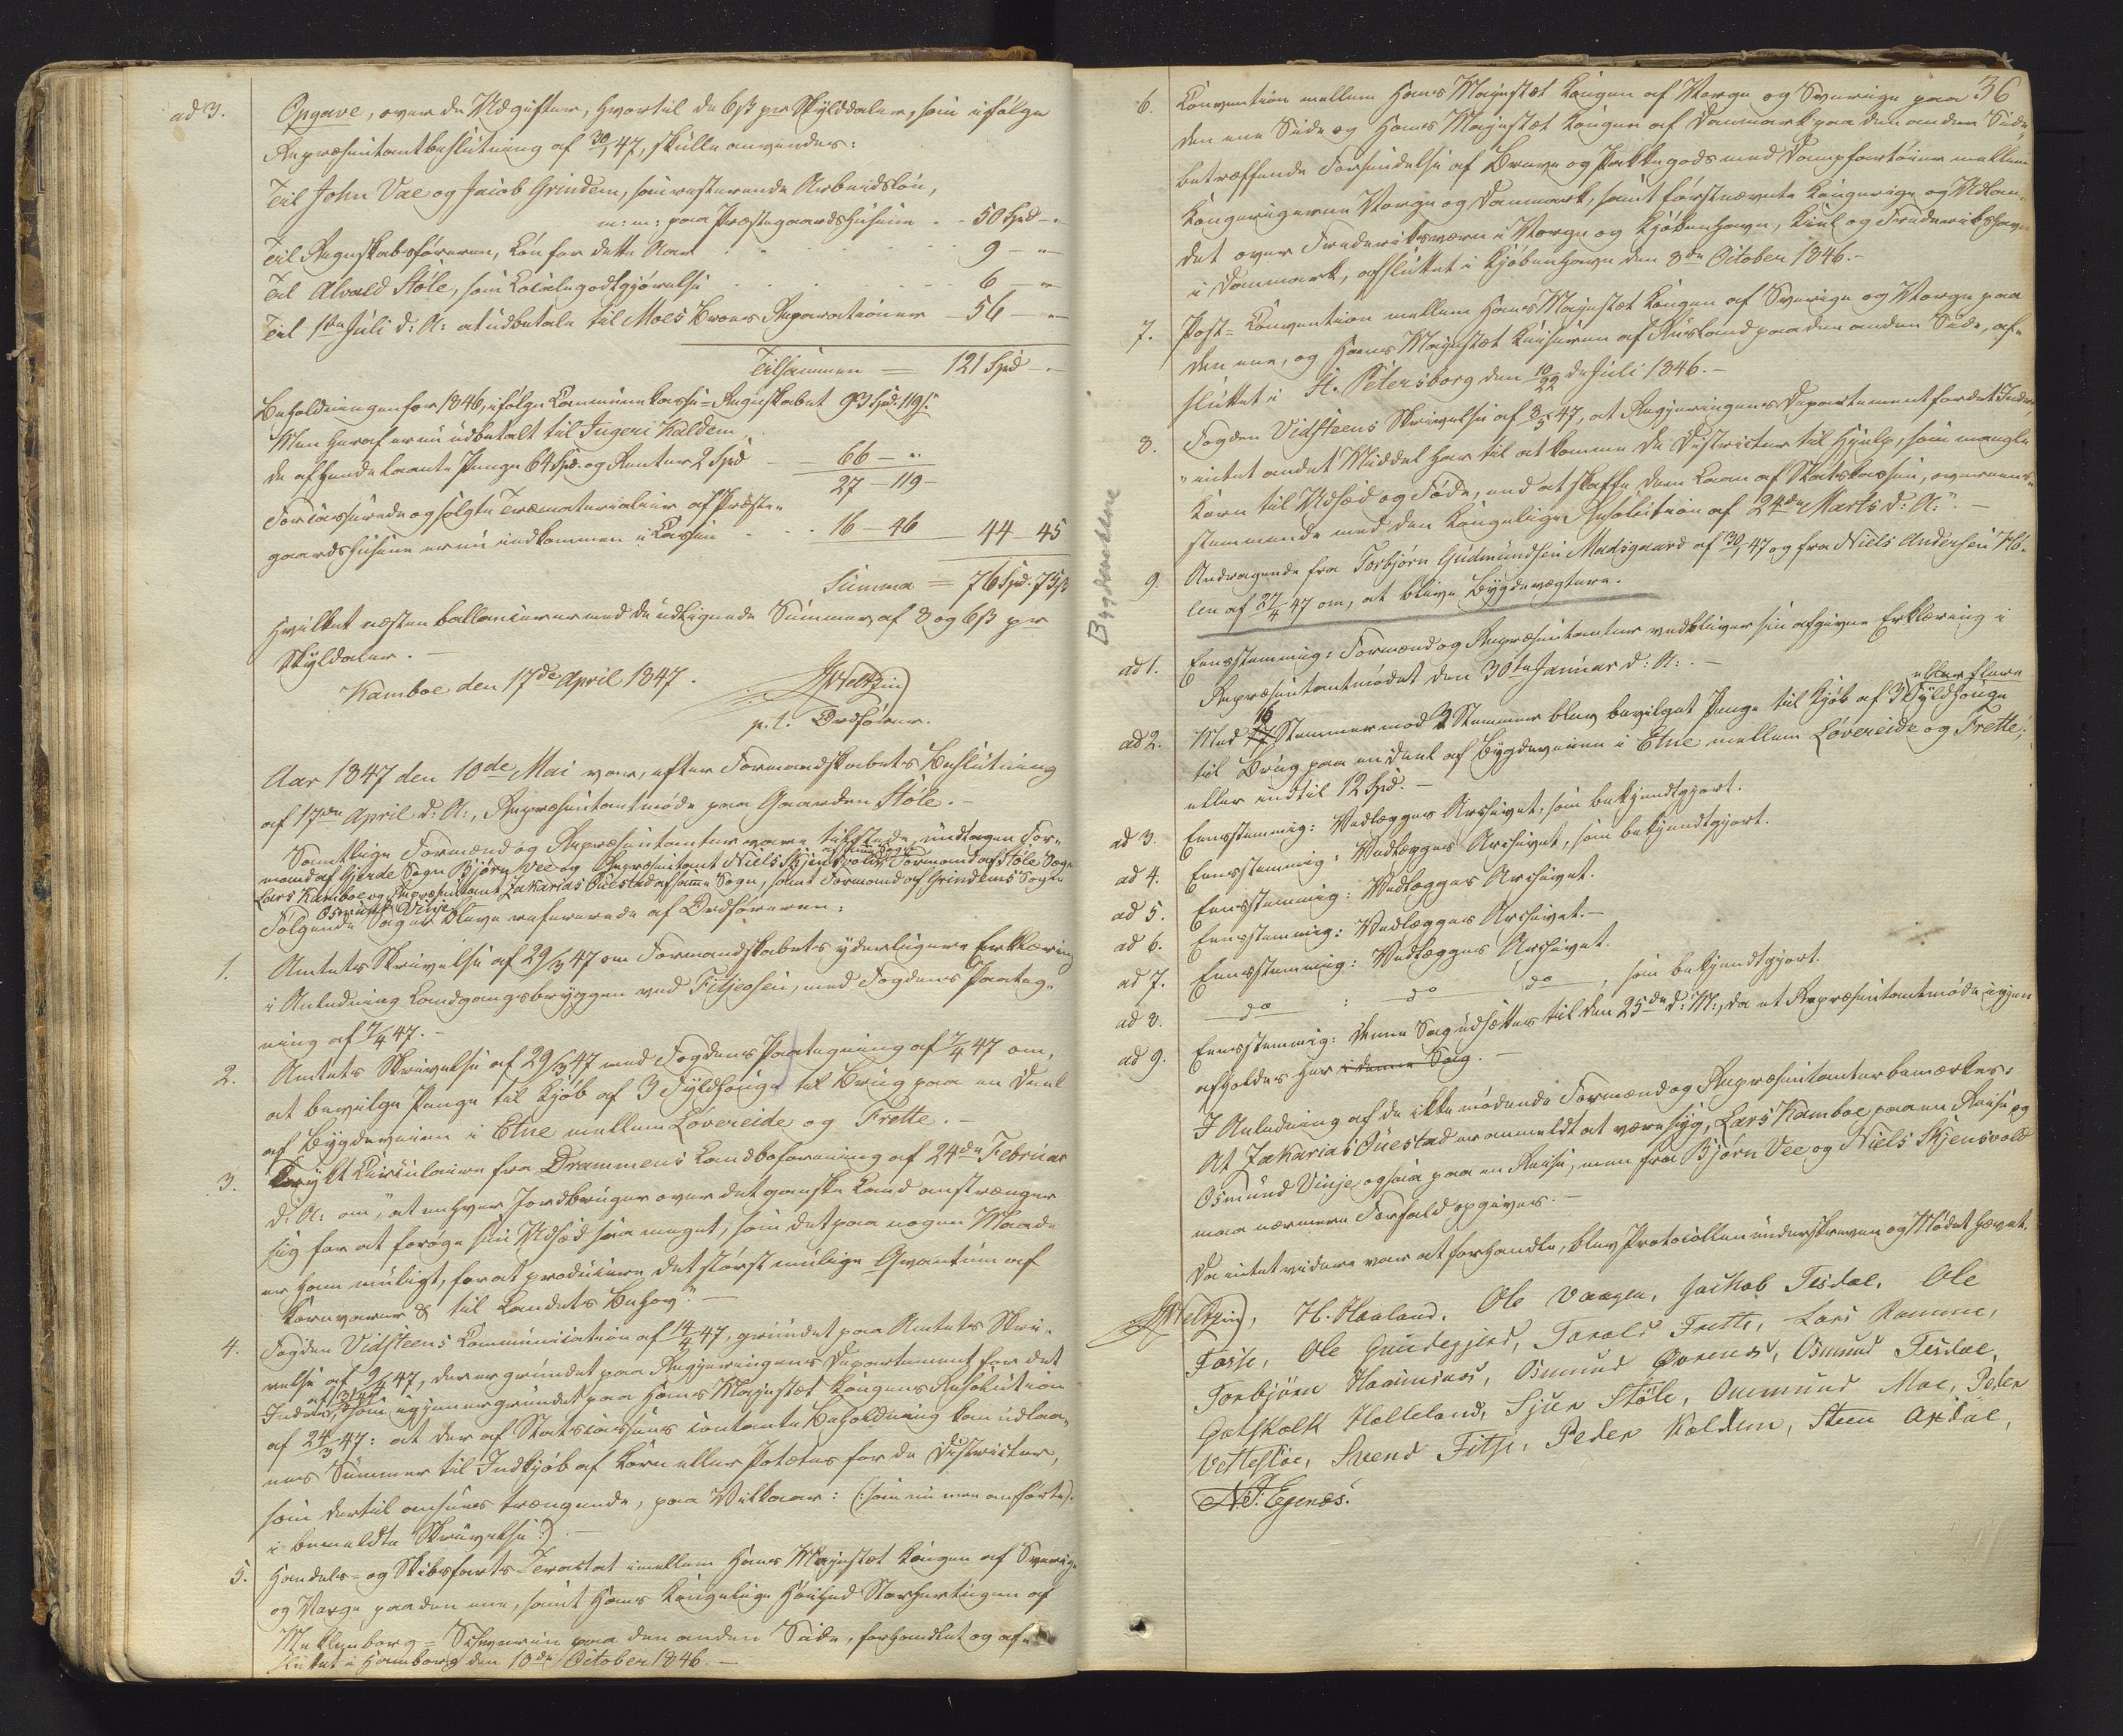 ad 3. Opgave, over de Udgifter, hvortil de 6 ß pr Skylddaler, som ifølge
Repræsentantbeslutning af 30/1 47, skulle anvendes:
Til John Vae og Jacob Grindem, som resterende Arbeidsløn,
m: m: paa Præstegaardshusene - - 50 Spd - "
Til Regnskabsføreren, Løn for dette Aar 9 - "
Til Alvald Støle, som Localegodtgjørelse 6 - "
Til 1ste Juli d: A: at udbetale til Moes Broes Reparationer - 56 - "
Tilsammen = 121 Spd -
Beholdningen for 1846, ifølge Communekasse-Regnskabet 93 Spd. 119 ß.
Men heraf er nu udbetalt til Ingeri Kaldem
de af hende laante Penge 64 Spd. og Renter 2 Spd - 66 - "
27 - 119 -
For casserede og solgte Træmaterialier af Præste-
gaardshusene er nu indkommen i Cassen - - 16 - 46 44 - 45
Summa = 76 Spd. 75 ß
Hvilket næsten ballancerer med de udlignede Summer af 8 og 6 ß pr
Skyldaler. -
Kamboe den 17de April 1847.
JWeltzin
p. t. Ordfører.
Aar 1847 den 10de Mai var, efter Formandskabets Beslutning
af 17de April d: A:, Repræsentantmøde paa Gaarden Støle. -
Samtlige Formænd og Repræsentanter vare tilstede, undtagen For-
af samme Sogn
mand af Gjerde Sogn Bjørn Vee og Repræsentant Niels Skjensvold, Formand af Støle Sogn
Lars Kamboe og Repræsentant Zakarias Ouestad af samme Sogn, samt Formand af Grindems Sogn
Osmund Vinje.
Følgende Sager bleve refererede af Ordføreren:
1. Amtets Skrivelse af 29/3 47 om Formandskabets yderligere Erklæring
i Anledning Landgangsbryggen ved Fitjeosen, med Fogdens Paateg-
ning af 7/4 47. -
2. Amtets Skrivelse af 29/3 47 med Fogdens Paategning af 7/4 47 om,
at bevilge Penge til Kjøb af 3 Fyldhouge til Brug paa en Deel
af Bygdeveien i Etne mellem Løvereide og Frette. -
3. Trykt Circulaire fra Drammens Landboforening af 24de Februar
d: A: om, "at enhver Jordbruger over det ganske Land anstrænger
sig for at forøge sin Udsæd saa meget, som det paa nogen Maade
er ham muligt, for at producere det størst mulige Qvantum af
Kornvarer & til Landets Behov." -
4. Fogden Vidsteens Communication af 14/4 47, grundet paa Amtets Skri-
velse af 9/4 47, der er grundet paa Regjeringens Departement for det
af 31/3 47
Indres, som igjen er grundet paa Hans Majestæt Kongens Resolution
af 24/3 47: at der af Statscassens contante Beholdning kan udlaa-
nes Summer til Indkjøb af Korn eller Potetes for de Districter,
som dertil ansees trængende, paa Vilkaar: (: som nu ere anførte
i bemeldte Skrivelse :). -
5. Handels- og Skibsfarts Tractat imellem Hans Majestæt Kongen af Sverige
og Norge paa den ene, samt Hans Kongelige Høihed Storhertugen af
Meklenborg-Schwerin paa den anden Side, forhandlet og af-
sluttet i Hamborg den 10de October 1846. -
36
6. Convention mellem Hans Majestæt Kongen af Norge og Sverige paa
den ene Side og Hans Majestæt Kongen af Danmark paa den anden Side,
betræffende Forsendelse af Breve og Pakkegods med Dampfartøier mellem
Kongerigerne Norge og Danmark, samt førstnævnte Kongerige og Udlan-
det over Frederiksværn i Norge og Kjøbenhavn, Kiel og Frederikshavn
i Danmark, afsluttet i Kjøbenhavn den 8de October 1846. -
7. Post-Convention mellem Hans Majestæt Kongen af Sverige og Norge paa
den ene, og Hans Majestæt Keiseren af Rusland paa den anden Side, af-
sluttet i St. Petersborg den 10/22 de Juli 1846. -
8. Fogden Vidsteens Skrivelse af 3/5 47, at Regjeringens Departement for det Indre
"intet andet Middel har til at komme de Districter til Hjelp, som mangle
Korn til Udsæd og Føde, end at skaffe dem Laan af Statskassen, overeens-
stemmende med den Kongelige Resolution af 24de Marts d: A:". -
9. Andragende fra Torbjørn Gudmundsen Madsgaard af 30/1 47 og fra Niels Andersen Hø-
len af 27/4 47 om, at blive Bygdevægtere.
Bygdevægtere
ad 1. Eensstemmig: Formænd og Repræsentanter vedbliver sin afgivne Erklæring i
Repræsentantmødet den 30te Januar d: A:. -
eller flere
16
ad 2. Med 17 Stemmer mod 2 Stemmer blev bevilget Penge til Kjøb af 3 Fyldhouge
til Brug paa en Deel af Bygdeveien i Etne mellem Løvereide og Frette;
eller indtil 12 Spd. -
ad 3. Eensstemmig: Vedlægges Archivet, som bekjendtgjort.
ad 4. Eensstemmig: Vedlægges Archivet, som bekjendtgjort.
ad 5. Eensstemmig: Vedlægges Archivet.
ad 6. Eensstemmig: Vedlægges Archivet. -
ad 7. Eensstemmig: Vedlægges Archivet.
ad 8. do : do do, som bekjendtgjort.
ad 9. Eensstemmig: Denne Sag udsættes til den 25de d: M:, da et Repræsentantmøde igjen
afholdes her i denne Sag. -
I Anledning af de ikke mødende Formænd og Repræsentanter bemærkes:
At Zakarias Ouestad er anmeldt at være syg, Lars Kamboe paa en Reise og
Osmund Vinje ogsaa paa en Reise, men fra Bjørn Vee og Niels Skjensvold
maa nærmere Forfald opgives. -
Da intet videre var at forhandle, blev Protocollen underskreven og Mødet hævet.
JWeltzin, H. Haaland. Ole Vaagen, Jackob Tesdal, Ole
Fosse, Ole Grindegjerd, Tarald Frette, Lars Ramme,
Torbjørn Haaimsnes, Osmund Øvrenes, Osmund Tesdal,
Gotskalk Halleland, Sjur Støle, Ommund Moe, Peder
Vettestøe, Svend Fitje, Peder Kaldem, Steen Axdal,
N. J. Egenæs.